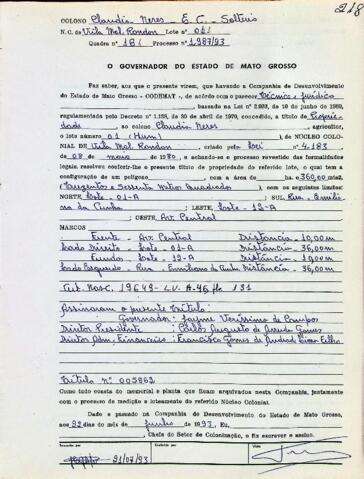 218
COLONO Claudia Neres - E. C. - Solteiro
N. C. de Vila Mal. Rondon Lote nº 01
Quadra nº 18 Processo nº 1.987/93
O GOVERNADOR DO ESTADO DE MATO GROSSO
Faz saber, aos que o presente virem, que havendo a Companhia de Desenvolvimento
do Estado de Mato Grosso - CODEMAT -, de acordo com o parecer Técnico e jurídico
baseado na Lei nº 2.093, de 10 de junho de 1969,
regulamentada pelo Decreto nº 1.138, de 30 de abril de 1970, concedido, a título de Proprie
dade ao colono Claudia Neres, agricultor,
o lote número 01 (Hum) de NÚCLEO COLO-
NIAL DE Vila Mal. Rondon, criado pelo Lei nº 4.183
de 08 de maio de 1980, e achando-se o processo revestido das formalidades
legais, resolveu conferir-lhe o presente título de propriedade do referido lote, o qual tem a
configuração de um polígono com a área de ha. e 360,00 mts2
(Trezentos e Sessenta Metros Quadrados) com os seguintes limites:
NORTE Lote - 01-A SUL Rua - Emilia-
no da Cunha LESTE Lote - 12-A
OESTE Av. Central
MARCOS
Frente - Av. Central Distância - 10,00 m
Lado Direito - Lote - 01-A Distância - 36,00 m
Fundo - Lote - 12-A Distância - 10,00 m
Lado Esquerdo - Rua - Emiliano da Cunha Distância - 36,00 m
Cert. Nasc. 19649 - LV. A-45 fls 131
Assinaram o presente Título:
Governador: Jayme Veríssimo de Campos
Diretor Presidente: Carlos Augusto de Arruda Gomes
Diretor Adm. Financeiro: Francisco Gomes de Andrade Lima Filho
Título nº 005962
Como tudo consta do memorial e planta que ficam arquivados nesta Companhia, juntamente
com o processo de medição e loteamento do referido Núcleo Colonial.
Dado e passado na Companhia de Desenvolvimento do Estado de Mato Grosso,
aos 22 dias do mês de junho de 1993, Eu,
Chefe do Setor de Colonização, o fiz escrever e assino.
21/07/93